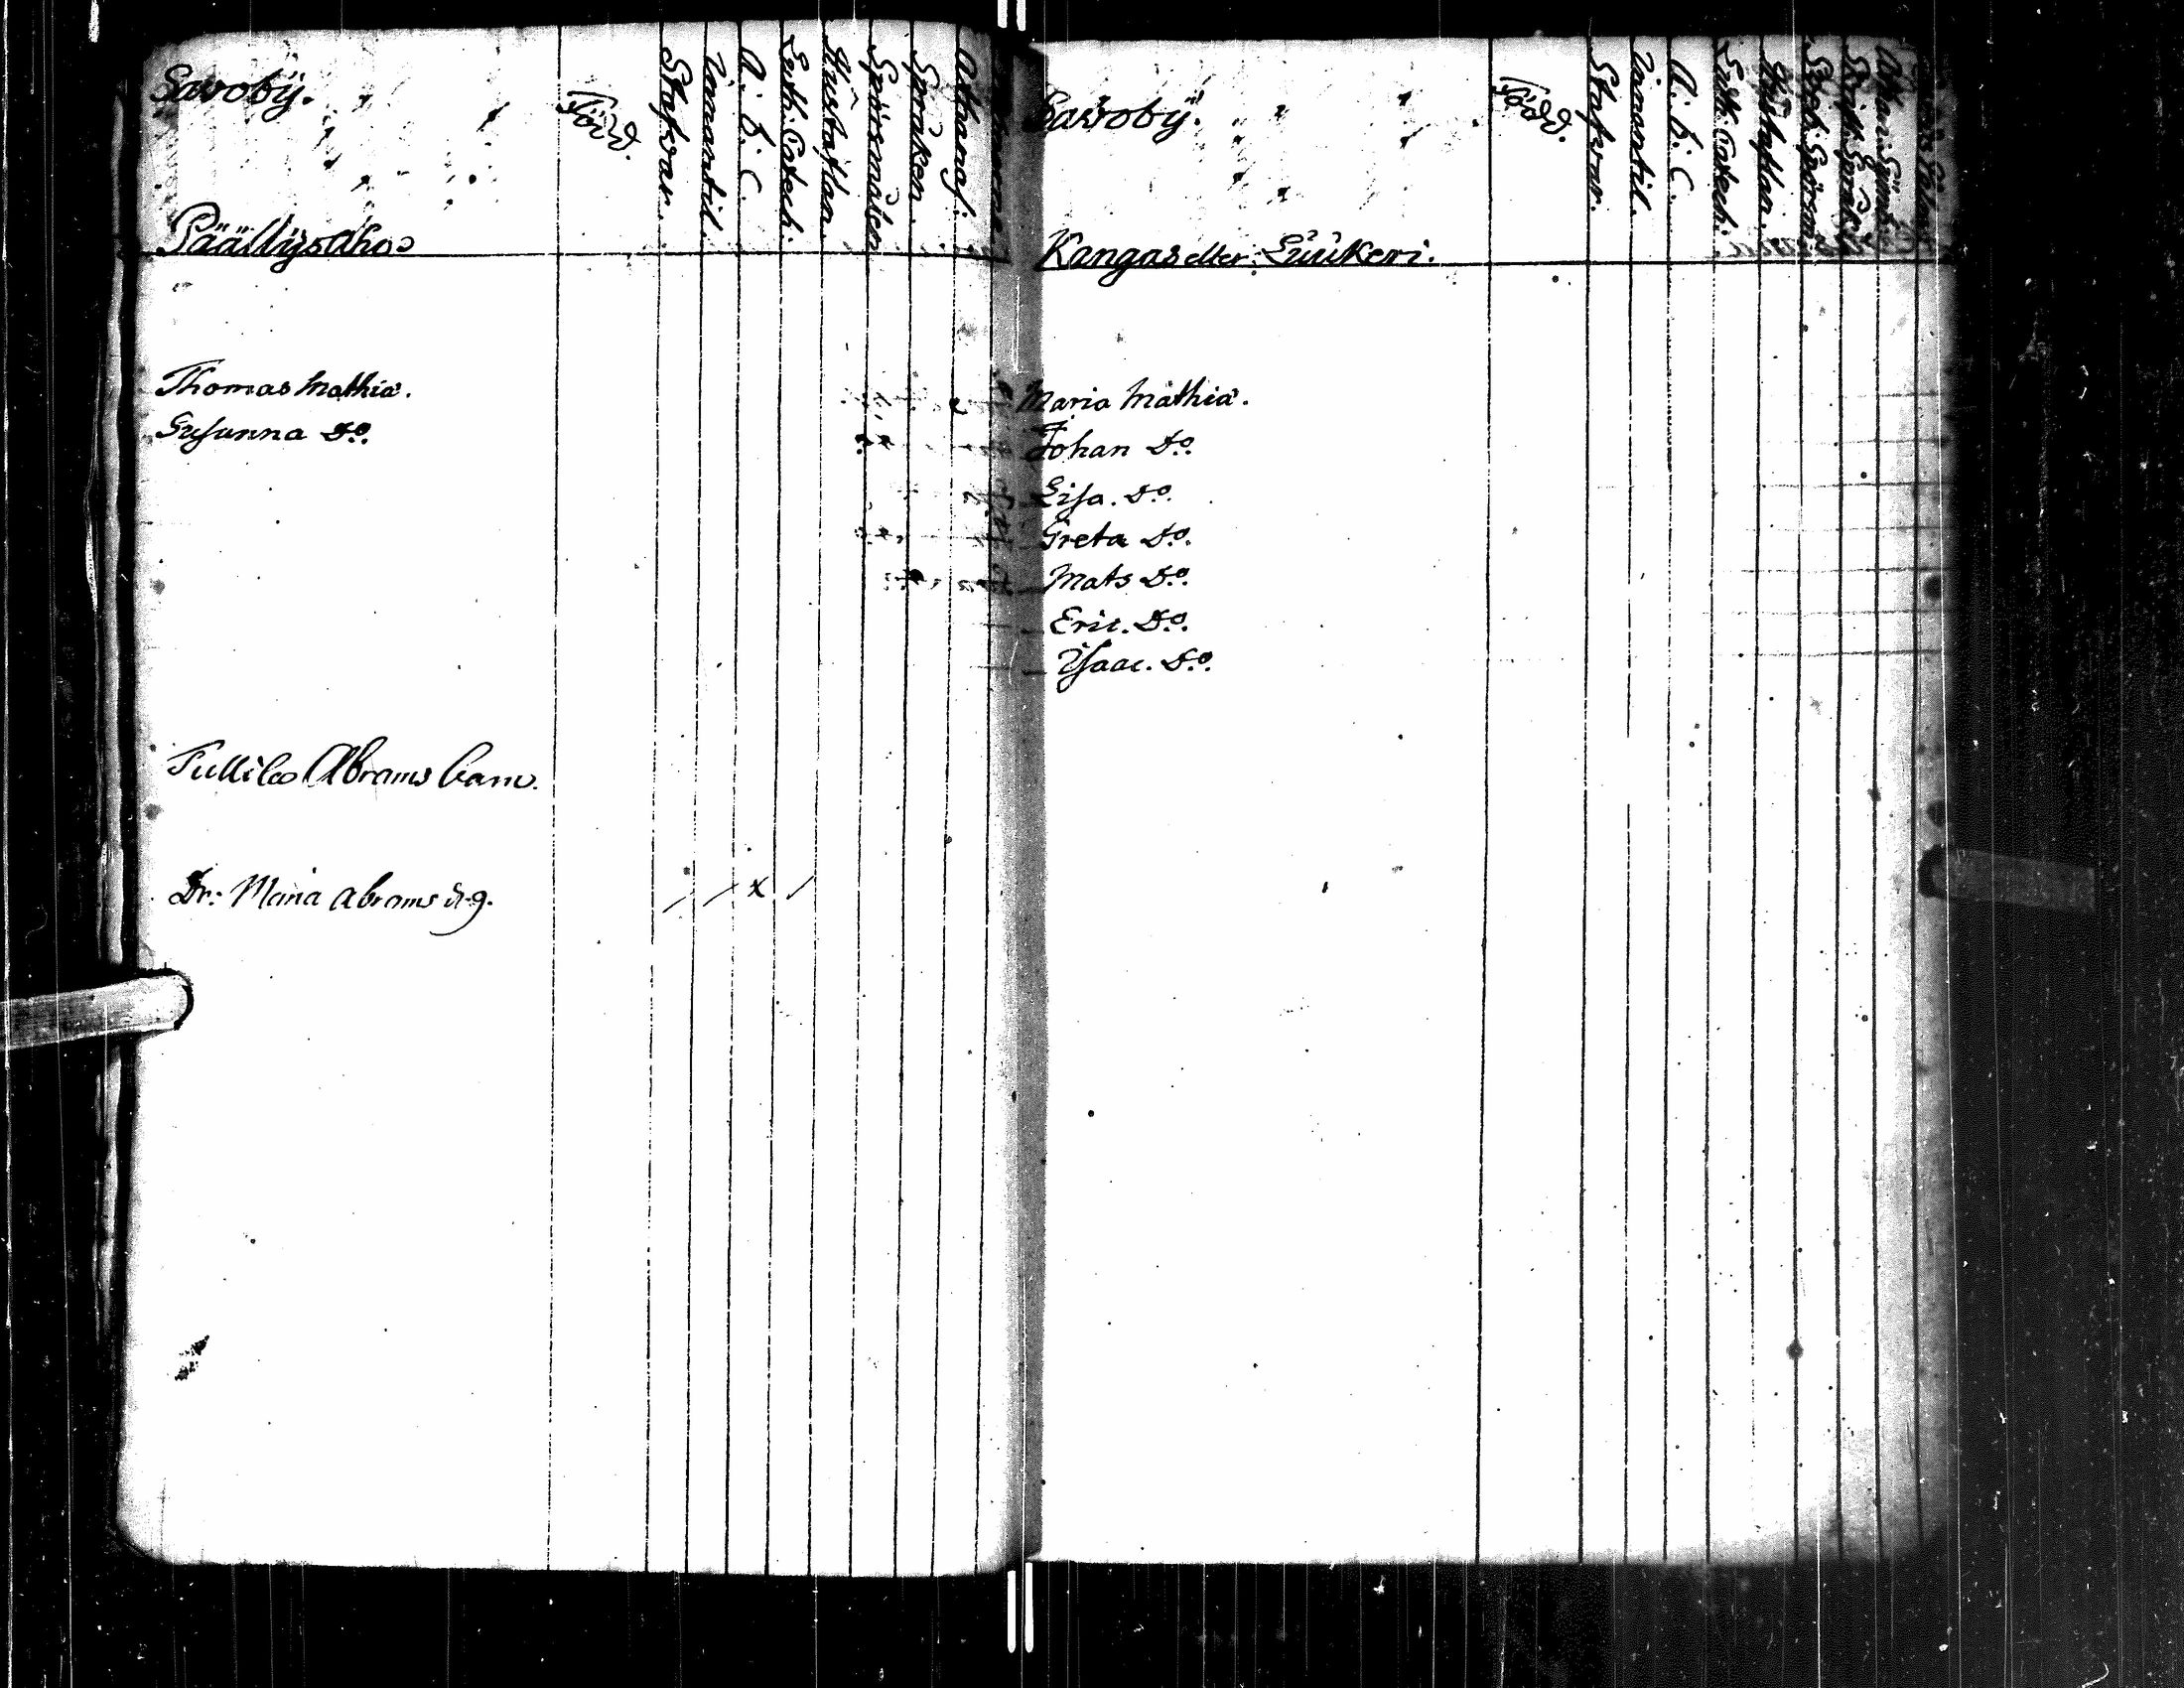 Savobÿ.
Född.
Stafvar.
Innantil.
A. b. C.
Luth. Catech.
Hustaflan.
Spörsmålen
Språken.
Athanas.
Päällÿsaho
Thomas Mathiæ.
Susanna Do.
Abrams barn.
Dr: Maria Abrams dr 9.
x
Savobÿ.
Född.
Stafvar.
Innantil.
A. b. C.
Luth. Catech.
Hustaflan.
Kangas eller Luukeri.
Maria Mathiæ.
Johan Do.
Lisa. Do.
Greta Do.
Mats Do.
Eric. Do.
Isaac. Do.